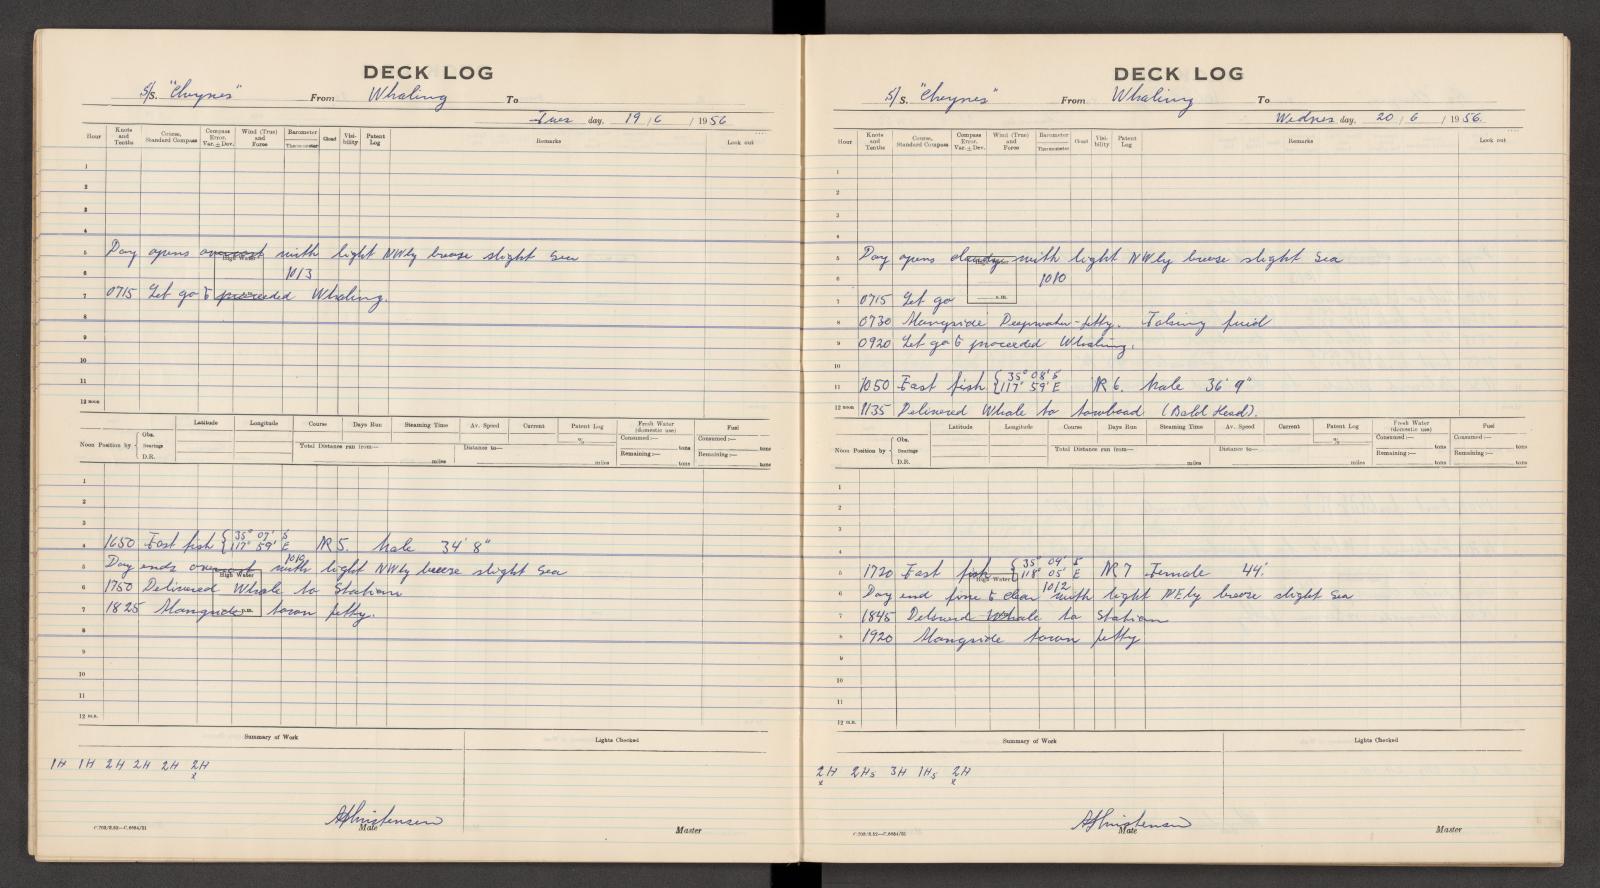 DECK LOG
S/S. "Cheynes" From Whaling To
Tues day, 19 / 6 / 1956
Hour Knots and Tenths Course, Standard Compass Compass Error. Var. ± Dev. Wind (True) and Force Barometer Thermometer Cloud Visibility Patent Log Remarks Look out
1
2
3
4
5 Day opens overcast with light NWly breeze slight Sea
High Water
6 1013
7 0715 Let go & proceeded Whaling.
8
9
10
11
12 noon
Latitude Longitude Course Days Run Steaming Time Av. Speed Current Patent Log Fresh Water (domestic use) Fuel
Noon Position by Obs. % Consumed:— tons Consumed:— tons
Bearings Total Distance ran from— miles Distance to— miles
D.R. Remaining:— tons Remaining:— tons
1
2
3
4 1650 Fast fish { 35° 07' S 117° 59' E NR 5. Male 34' 8"
1012
5 Day ends overcast with light NWly breeze slight Sea
High Water
6 1750 Delivered Whale to Station
7 1825 Alongside town jetty.
p.m.
8
9
10
11
12 M.N.
Summary of Work Lights Checked
1H 1H 2H 2H 2H 2H
x
A Christensen
Mate Master
C.702/8.52—C.6684/51
DECK LOG
S/S. "Cheynes" From Whaling To
Wednes day, 20 / 6 / 1956.
Hour Knots and Tenths Course, Standard Compass Compass Error. Var. ± Dev. Wind (True) and Force Barometer Thermometer Cloud Visibility Patent Log Remarks Look out
1
2
3
4
5 Day opens cloudy with light NWly breeze slight Sea
6 1010
7 0715 Let go
a.m.
8 0730 Alongside Deepwater-jetty. Taking fuel
9 0920 Let go & proceeded Whaling.
10
11 1050 Fast fish { 35° 08' S 117° 59' E NR 6. Male 36' 9"
12 noon 1135 Delivered Whale to towboad (Bald Head).
Latitude Longitude Course Days Run Steaming Time Av. Speed Current Patent Log Fresh Water (domestic use) Fuel
Noon Position by Obs. % Consumed:— tons Consumed:— tons
Bearings Total Distance ran from— miles Distance to— miles
D.R. Remaining:— tons Remaining:— tons
1
2
3
4
5 1720 Fast fish { 35° 04' S 118° 05' E NR 7 Female 44'.
High Water
1012
6 Day end fine & clear with light NEly breeze slight Sea
7 1845 Delivered Whale to Station
8 1920 Alongside town jetty
9
10
11
12 M.N.
Summary of Work Lights Checked
2H 2Hs 3H 1Hs 2H
x x
A Christensen
Mate Master
C.702/8.52—C.6684/51